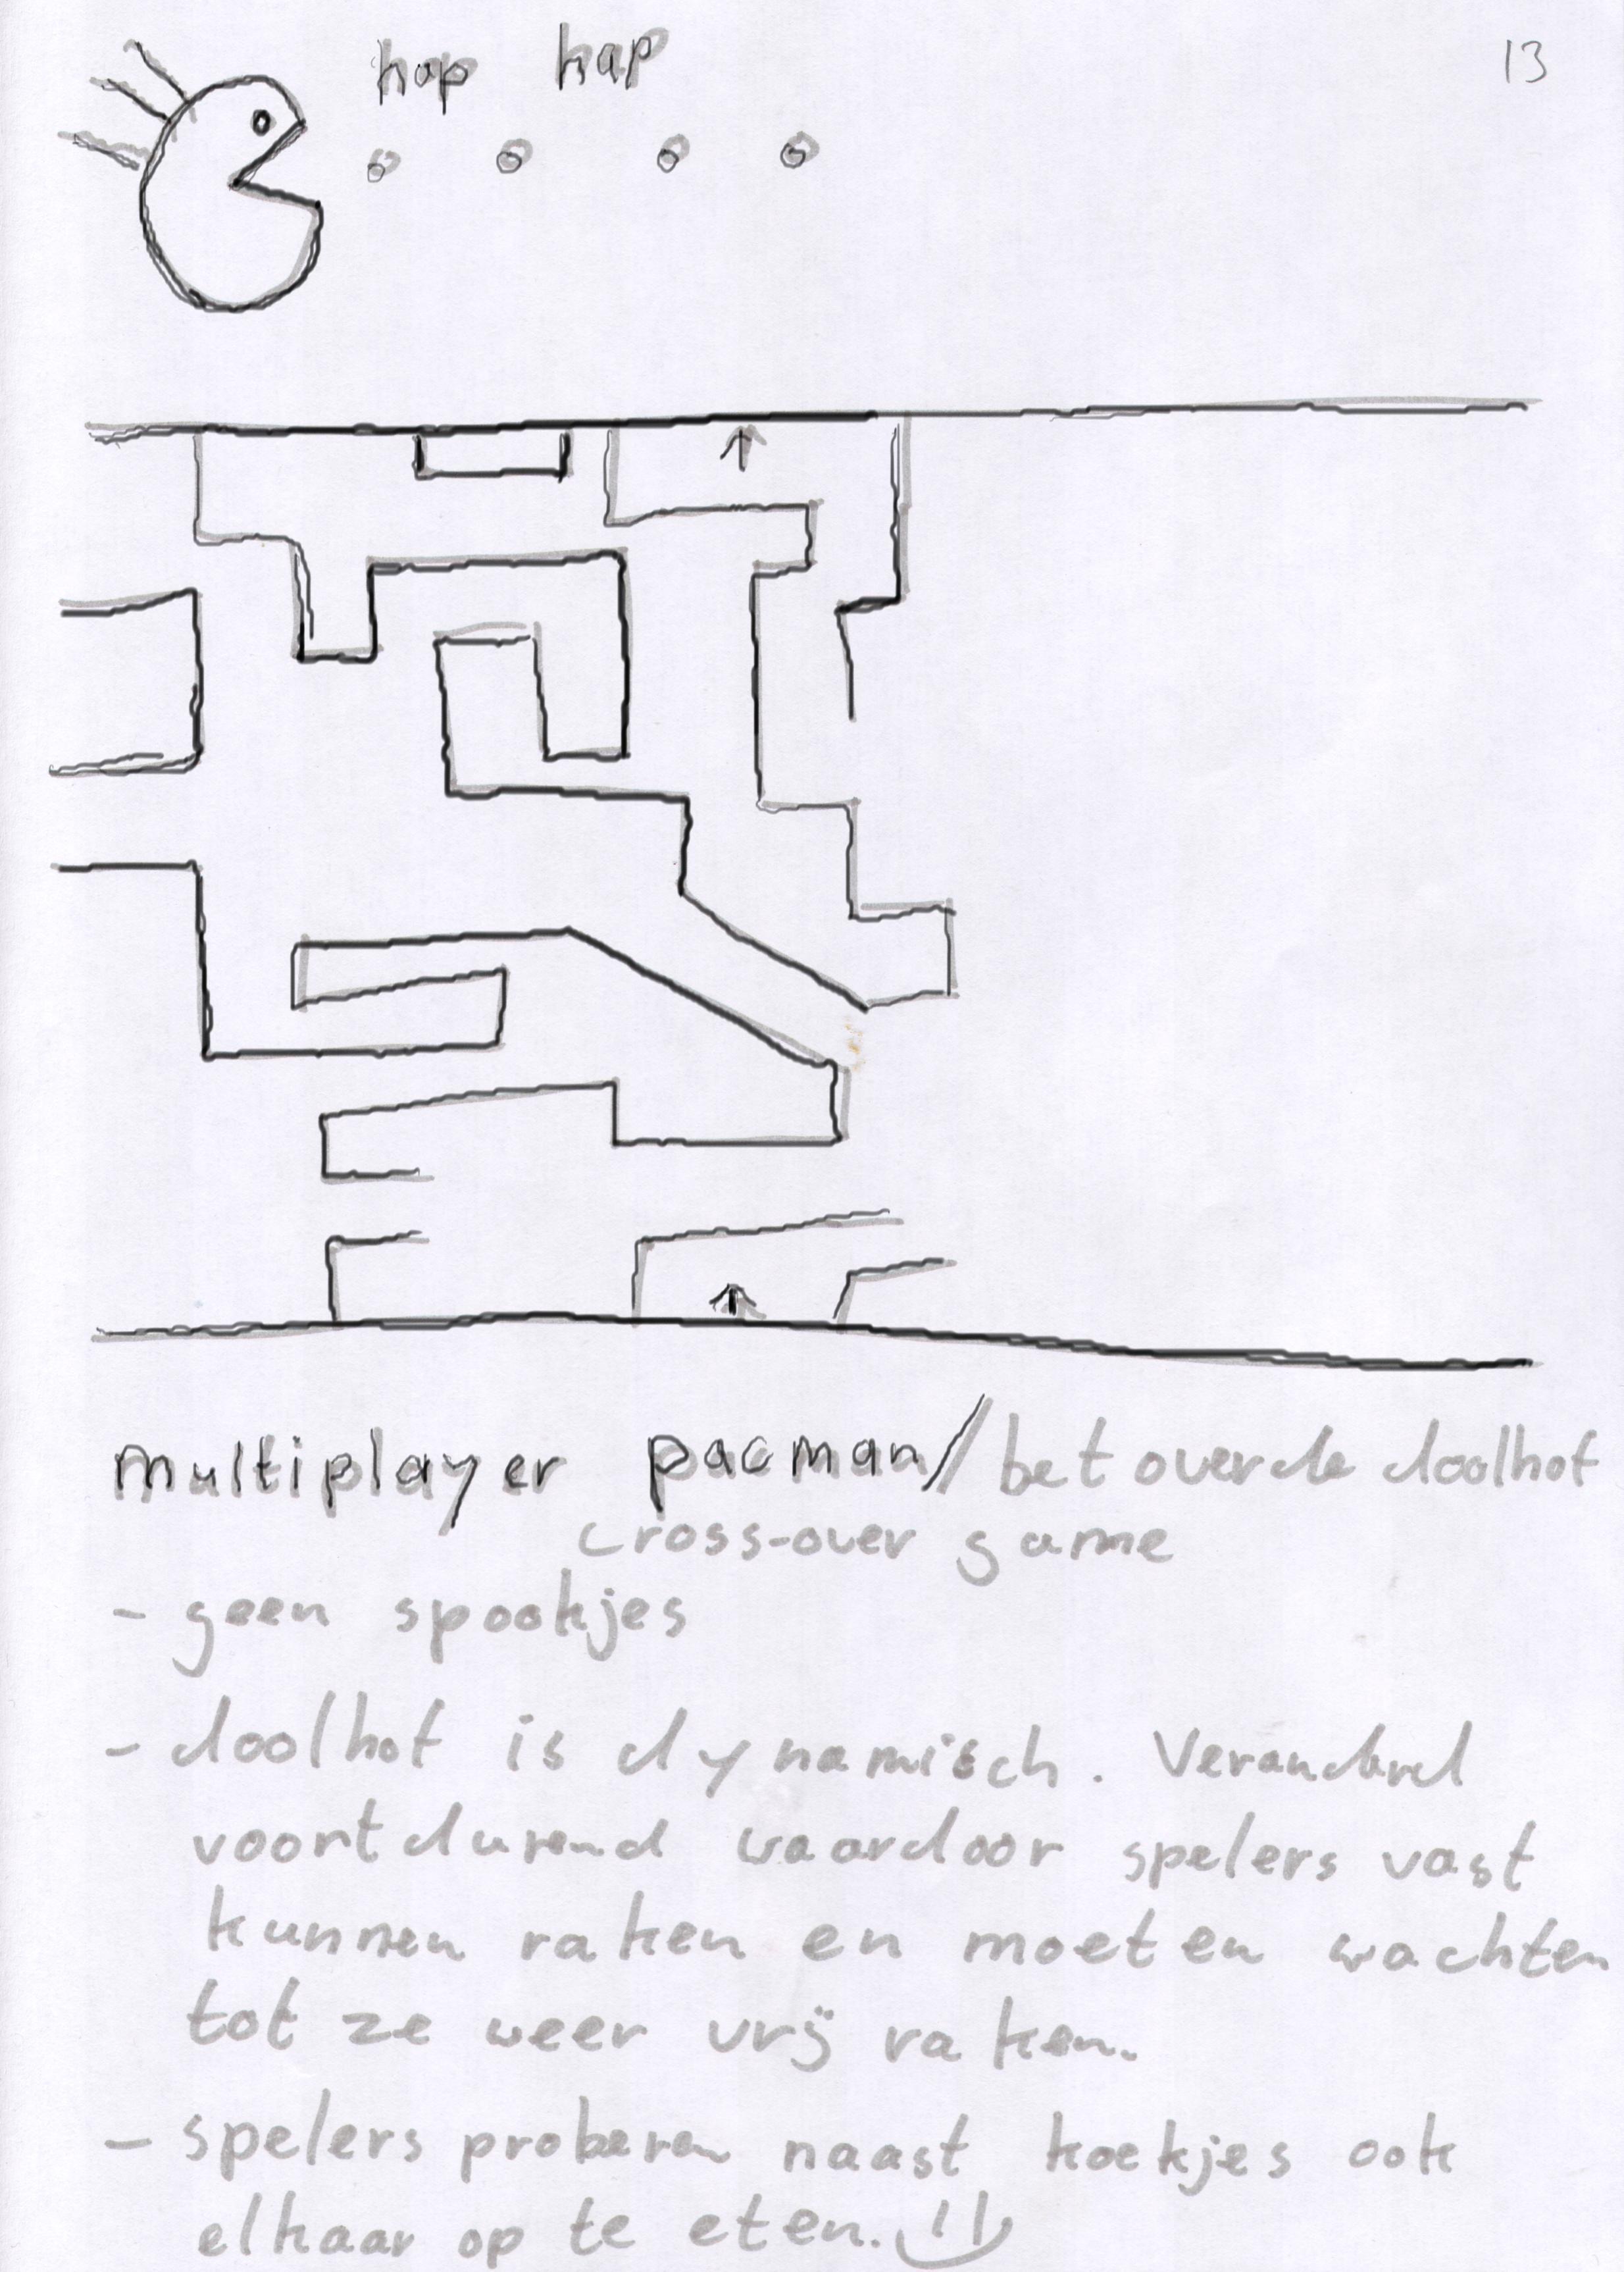 hap hap
13
multiplayer pacman/betoverde doolhof
cross-over game
- geen spookjes
- doolhof is dynamisch. Veranderd
voortdurend waardoor spelers vast
kunnen raken en moeten wachten
tot ze weer vrij raken.
- spelers proberen naast koekjes ook
elkaar op te eten.